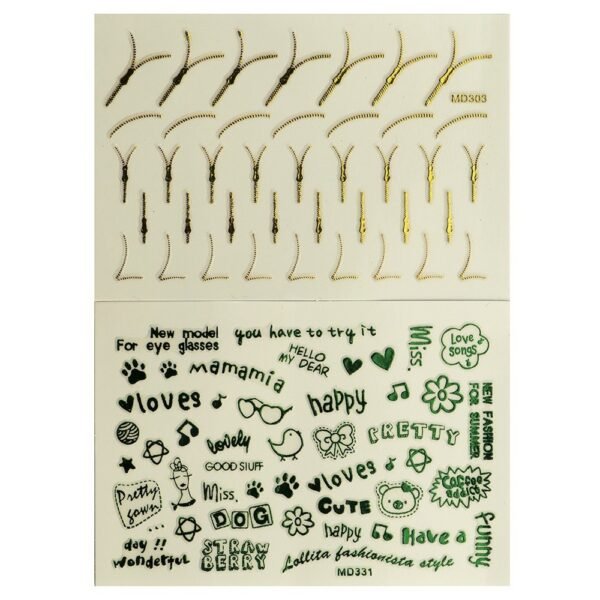 MD303
New model
For eye glasses
you have to try it
HELLO
MY DEAR
Miss.
Love
songs
mamamia
loves
happy
NEW FASHION
FOR SUMMER
PRETTY
lovely
GOOD STUFF
loves
Pretty
gown
Miss.
CUTE
Coffee
addict
DOG
happy
Have a
funny
day !!
wonderful
STRAW
BERRY
Lollita fashionista style
MD331